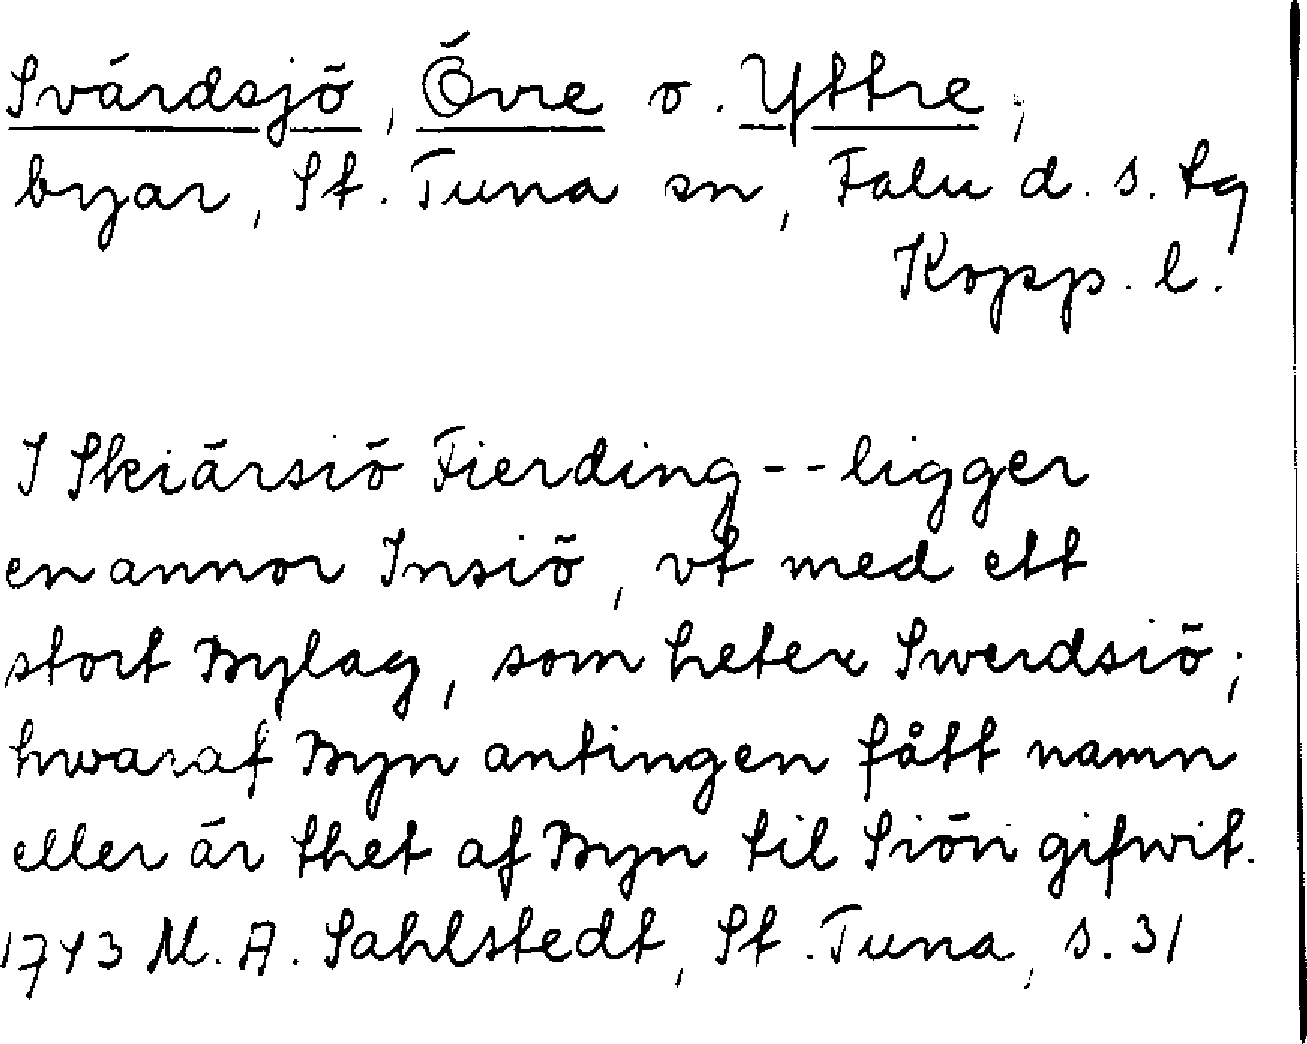 Svärdsjö, Övre o. Yttre;
byar, St. Tuna sn, Falu d. s. tg
Kopp. l.
I Skiärsiö Fierding -- ligger
en annor Insiö, vt med ett
stort Bylag, som heter Swerdsiö;
hwaraf Byn antingen fått namn
eller är thet af Byn til Siön gifwit.
1743 M. A. Sahlstedt, St. Tuna, s. 31